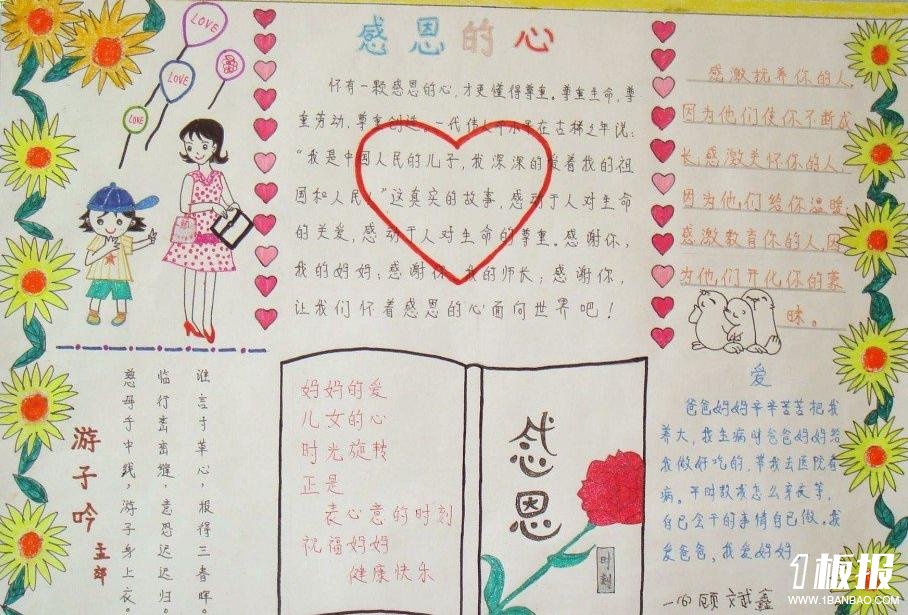 LOVE
LOVE
LOVE
感恩的心
怀有一颗感恩的心，才更懂得尊重。尊重生命，尊
重劳动，尊重创造。一代伟人邓小平在古稀之年说：
“我是中国人民的儿子，我深深的爱着我的祖
国和人民！”这真实的故事，感动于人对生命
的关爱，感动于人对生命的尊重。感谢你，
我的妈妈；感谢你，我的师长；感谢你，
让我们怀着感恩的心面向世界吧！
感激抚养你的人，
因为他们使你不断成
长，感激关怀你的人，
因为他们给你温暖，
感激教育你的人，因
为他们开化你的蒙
昧。
游子吟
慈母手中线，游子身上衣。
临行密密缝，意恐迟迟归。
谁言寸草心，报得三春晖。
妈妈的爱
儿女的心
时光旋转
正是
表心意的时刻
祝福妈妈
健康快乐
感恩
时刻
爱
爸爸妈妈辛辛苦苦把我
养大，我生病时爸爸妈妈给
我做好吃的，带我去医院看
病。平时教我怎么穿衣等，
自己会干的事情自己做。我
爱爸爸，我爱妈妈
1板报
WWW.1BANBAO.COM